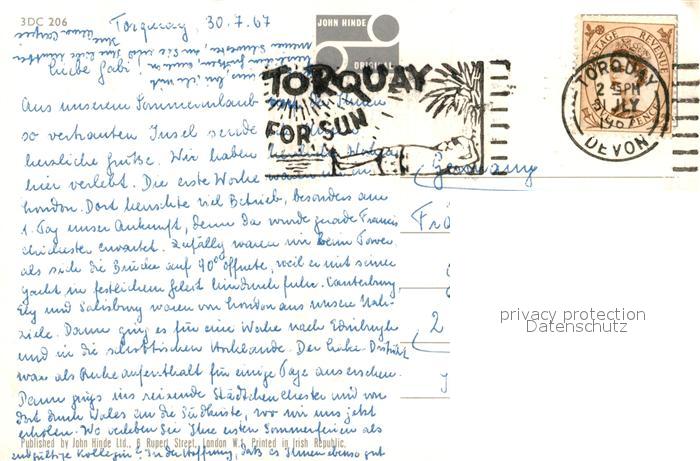 3DC 206
Torquay, 30.7.67
JOHN HINDE
ORIGINAL
Liebe Gabi,
TORQUAY
FOR SUN
TORQUAY
2 15 PM
31 JLY
DEVON
POSTAGE REVENUE
PENCE
Aus unserem Sommerurlaub von der Ihnen
so vertrauten Insel sende ich Ihnen
herzliche Grüße. Wir haben herrliche
hier verlebt. Die erste Woche waren wir in
London. Dort herrschte viel Betrieb, besonders am
1. Tag unser Ankunft, denn da wurde gerade Francis
Chichester erwartet. Zufällig waren wir beim Tower
als sich die Brücke auf 90° öffnete, weil er mit seiner
Yacht in festlichem Geleit hindurch fuhr. Canterbury,
Ely und Salisbury waren von London aus unsere Nah-
ziele. Dann ging es für eine Woche nach Edinburgh
und in die schottischen Hochlande. Der Lake-District
war als Ruheaufenthalt für einige Tage ausersehen.
Dann ging's ins reizende Städtchen Chester und von
dort durch Wales an die Südküste, wo wir uns jetzt
erholen. Wo verleben Sie Ihre ersten Sommerferien als
endgültige Kollegin? In der Hoffnung, daß es Ihnen ebenso gut
Germany
Frä
2
privacy protection
Datenschutz
Published by John Hinde Ltd., 6 Rupert Street, London W.1. Printed in Irish Republic.